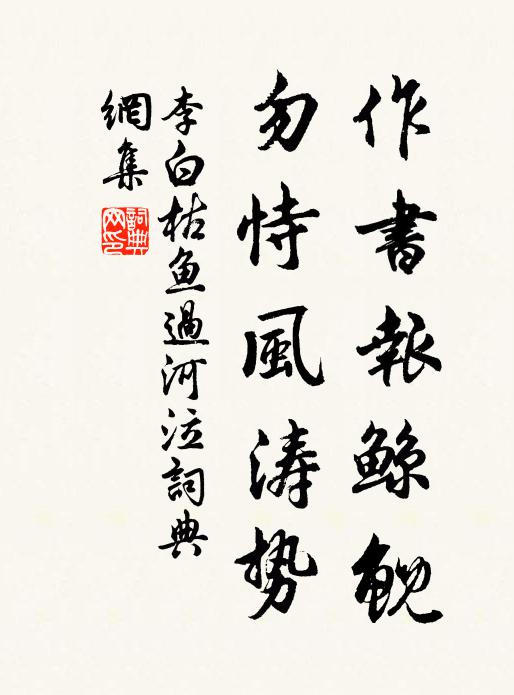 作書報鯨鯢
勿恃風涛势
李白枯鱼過河泣詞典
網集
詞典网印